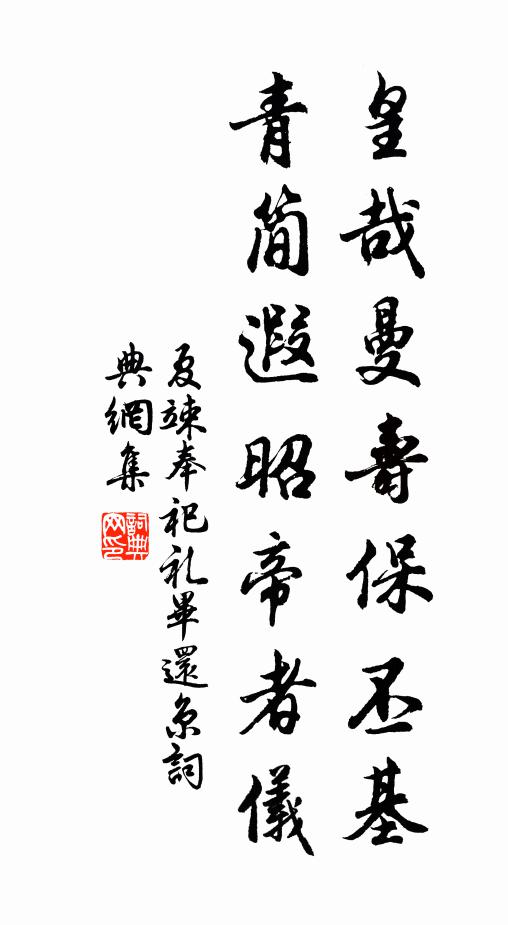 皇哉曼壽保丕基
青简遐昭帝者儀
夏竦奉祀礼畢還京詞
典網集
詞典
网印